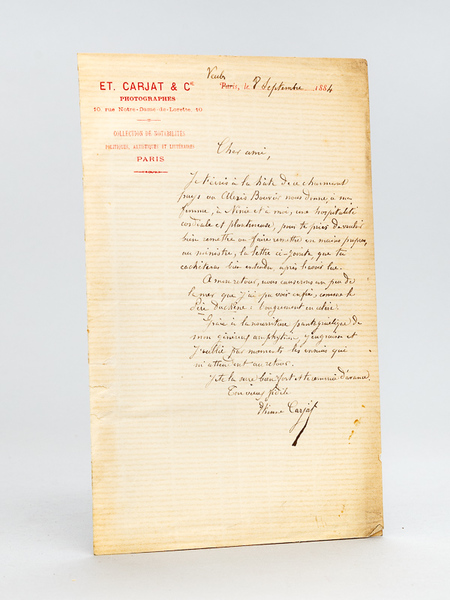 ET. CARJAT & Cie
PHOTOGRAPHES
10 rue Notre-Dame-de-Lorette, 10
COLLECTION DE NOTABILITÉS
POLITIQUES, ARTISTIQUES ET LITTÉRAIRES
PARIS
Veules
Paris, le 8 Septembre 1884
Cher ami,
Je t'écris à la hâte de ce charmant
pays où Alexis Bouvier nous donne, à ma
femme, à Ninie et à moi, une hospitalité
cordiale et plantureuse, pour te prier de vouloir
bien remettre ou faire remettre en mains propres,
au ministre, la lettre ci-jointe que tu
cachèteras bien entendu, après l'avoir lue.
A mon retour, nous causerons un peu de
la mer que j'ai pu voir enfin, comme le
Père Duchêne
Grâce à la nourriture pantagruélique de
mon généreux amphytrion, j'engraisse et
j'oublie par moments les ennuis que
m'attendent au retour.
Je te la serre bien fort et te remercie d'avance
Ton vieux fidèle
Etienne Carjat